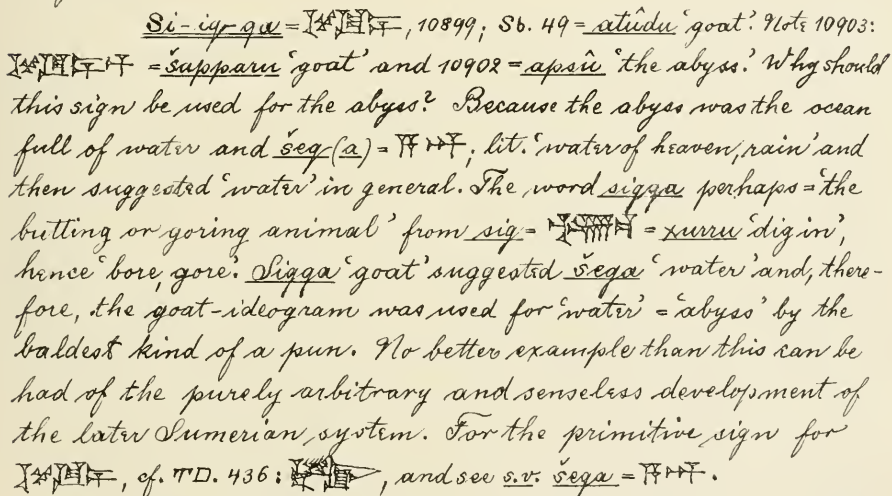 Si-ig-ga = , 10899; Sb. 49 = atûdu ‘goat’. Note 10903:
= šapparu ‘goat’ and 10902 = apsû ‘the abyss.’ Why should
this sign be used for the abyss? Because the abyss was the ocean
full of water and šeg(a) = 𒀀𒀭; lit. ‘water of heaven, rain’ and
then suggested ‘water’ in general. The word sigga perhaps = ‘the
butting or goring animal’ from sig = = xurru ‘dig in’,
hence ‘bore, gore’. Sigga ‘goat’ suggested šega ‘water’ and, there-
fore, the goat-ideogram was used for ‘water’ = ‘abyss’ by the
baldest kind of a pun. No better example than this can be
had of the purely arbitrary and senseless development of
the later Sumerian system. For the primitive sign for
, cf. TD. 436: , and see s.v. šega = 𒀀𒀭.